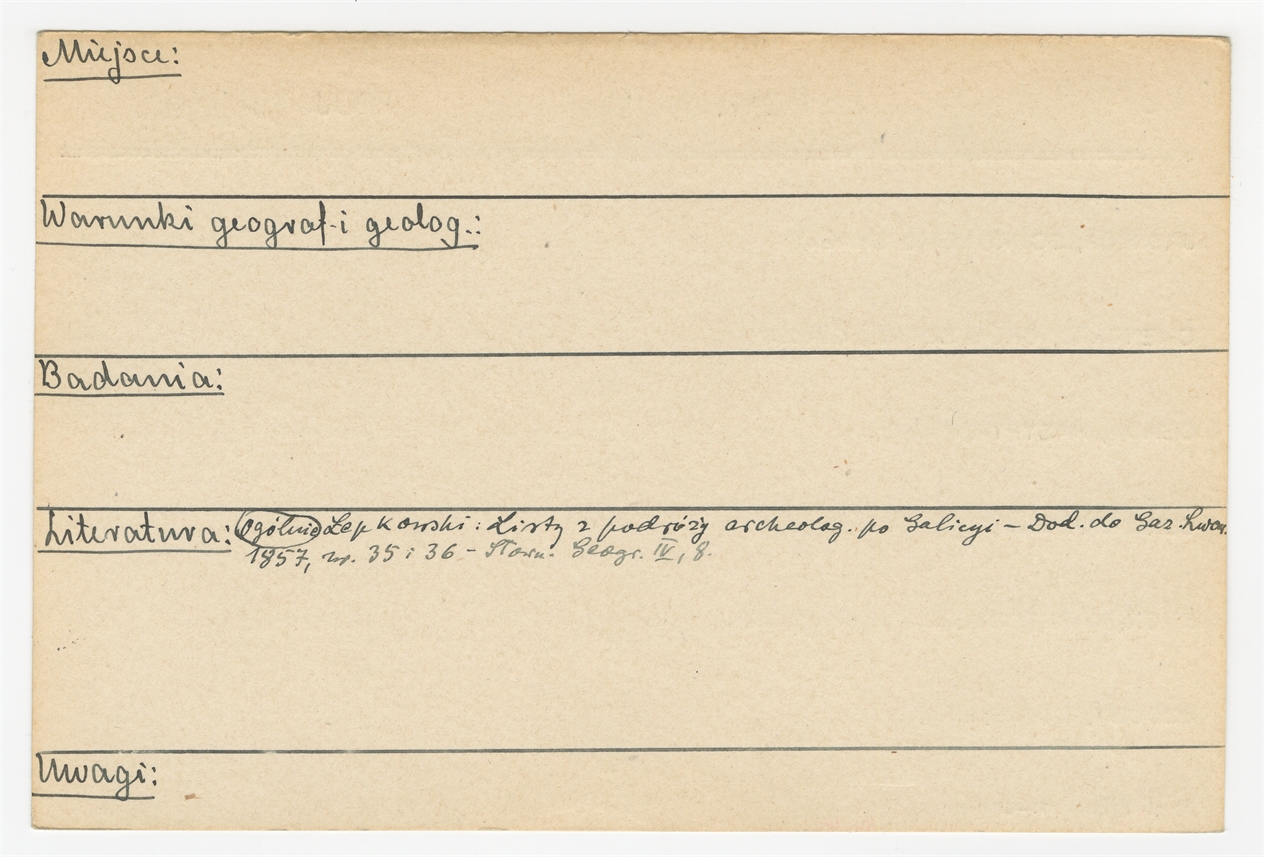 Miejsce:
Warunki geograf. i geolog.:
Badania:
Literatura: Ogólnie Łepkowski: Listy z podróży archeolog. po Galicyi – Dod. do Gaz. Lwow.
1857, nr. 35 i 36 – Słown. Geogr. IV, 8.
Uwagi: